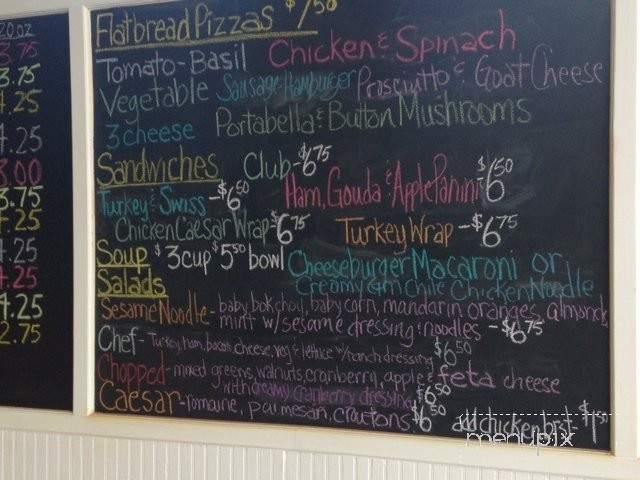 20oz
3.75
3.75
4.25
4.25
3.00
3.75
4.25
4.25
4.25
4.25
2.75
Flatbread Pizzas $7.50
Tomato-Basil Chicken & Spinach
Vegetable Sausage Hamburger Prosciutto & Goat Cheese
3 cheese Portabella & Button Mushrooms
Sandwiches Club-$6.75
Turkey & Swiss -$6.50 Ham, Gouda & Apple Panini $6.50
Chicken Caesar Wrap $6.75 Turkey Wrap -$6.75
Soup $3 cup $5.50 bowl Cheeseburger Macaroni or
Creamy Chile Chicken Noodle
Salads
Sesame Noodle- baby bok choy, baby corn, mandarin oranges, almonds,
mint w/ sesame dressing & noodles -$6.75
Chef- Turkey, ham, bacon, cheese, veg & lettuce w/ranch dressing $6.50
Chopped- mixed greens, walnuts, cranberry, apple & feta cheese
with creamy cranberry dressing $6.50
Caesar-romaine, parmesan, croutons $6.50 add chicken brst-$1.50
menupix